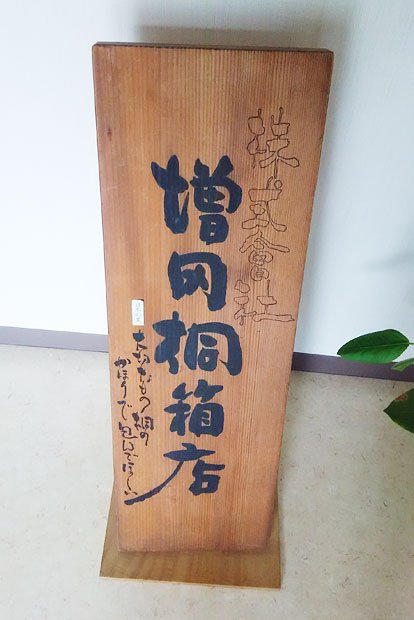 株式會社
増田桐箱店
大切なもの 桐の
かほりで包んでほしい